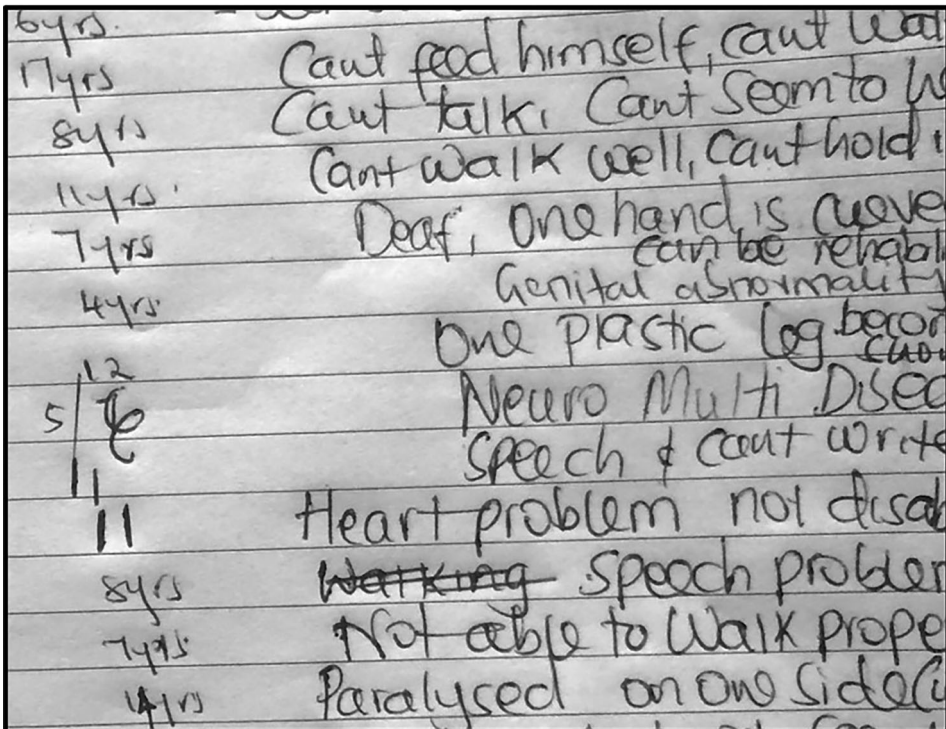 6yrs.
17yrs Cant feed himself, cant
8yrs Cant talk, Cant Seem to
11yrs. Cant walk well, Cant hold
7yrs Deaf, One hand is
can be
4yrs. Genital abnormality
One Plastic leg
12
5/ Neuro Multi
Speech & cant write
11 Heart problem not
8yrs Speech
7yrs Not able to Walk
14yrs Paralysed on one side